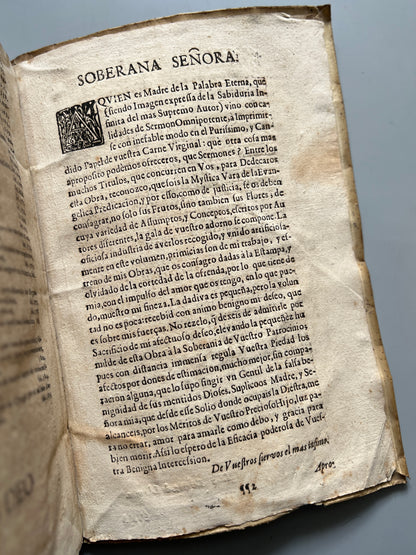 SOBERANA SEÑORA.
A QVIEN es Madre de la Palabra Eterna, que
(siendo Imagen expressa de la Sabiduria In-
finita del mas Supremo Autor) vino con ca-
lidades de Sermon Omnipotente, à Imprimir-
se con inefable modo en el Purissimo, y Can-
dido Papel de vuestra Carne Virginal: què otra cosa mas
aproposito podemos ofreceros, que Sermones? Entre los
muchos Titulos, que concurren en Vos, para Dedicaros
esta Obra, reconozco, que sois la Mystica Vara de la Evan-
gelica Predicacion, y por esso, como de justicia, se os deben
consagrar, no solo sus Frutos, sino tambien sus Flores, de
cuya variedad de Assumptos, y Conceptos, escritos por Au-
tores diferentes, la gala de vuestro adorno se compone. La
oficiosa industria de averlos recogido, y vnido artificiosa-
mente en este volumen, primicias son de mi trabajo, y es-
treno de mis Obras, que os consagro dadas à la Estampa, y
olvidado de la cortedad de la ofrenda, por lo que tiene de
mia, con el impulso del amor que os tengo, en lo que pue-
do, muestro mi fineza. La dadiva es pequeña, pero la volun-
tad no es poca: recebid con animo benigno mi deseo, que
es sobre mis fuerças. No rezelo, q̃ dexeis de admitirle por
Sacrificio de mi afectuoso deseo, elevando la pequeñez hu
milde de esta Obra à la Soberania de Vuestro Patrocinio,
pues con distancia immensa regula Vuestra Piedad los
afectos por dones de estimacion, mucho mejor, sin compa-
racion alguna, que lo supo fingir vn Gentil de la falsa be-
nignidad de sus mentidos Dioses. Suplicoos Madre, y Se-
ñora mia, que desde esse Solio donde ocupais la Diestra, me
alcanceis, por los Meritos de Vuestro Precioso Hijo, luz pa-
ra no errar, amor para amarle como debo, y gracia para
bien morir. Assi lo espero de la Eficacia poderosa de Vues-
tra Benigna Intercession.
De Vuestros siervos el mas infimo.
¶¶2
Apro-